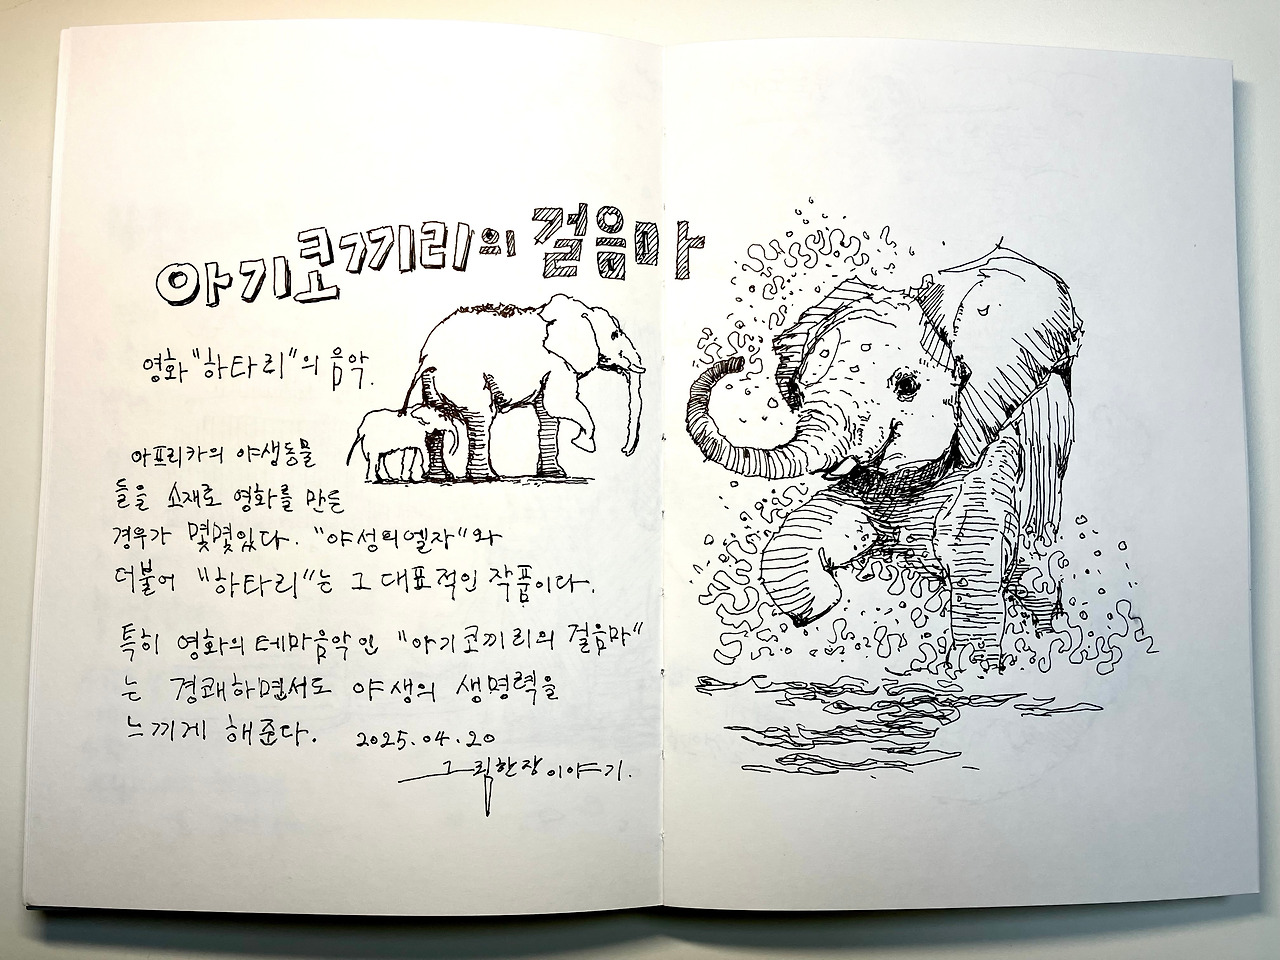 아기코끼리의 걸음마
영화 "하타리"의 음악.
아프리카의 야생동물
들을 소재로 영화를 만든
경우가 몇몇있다. "야성의엘자"와
더불어 "하타리"는 그 대표적인 작품이다.
특히 영화의 테마음악인 "아기코끼리의 걸음마"
는 경쾌하면서도 야생의 생명력을
느끼게 해준다. 2025.04.20
그림한장이야기.